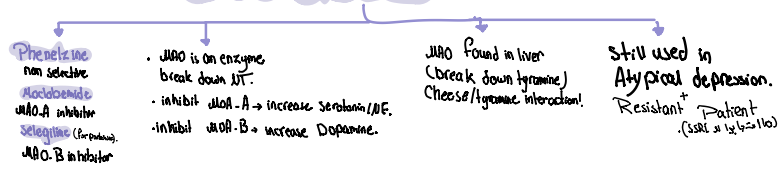 Phenelzine
non selective
Moclobemide
MAO-A inhibitor
Selegiline (for parkinson).
MAO-B inhibitor
• MAO is an enzyme
break down NT.
• inhibit MOA-A → increase Serotonin/NE.
• inhibit MOA-B → increase Dopamine.
MAO found in liver
(break down tyramine)
Cheese/tyramine interaction!
Still used in
Atypical depression.
+
Resistant Patient
(SSRI